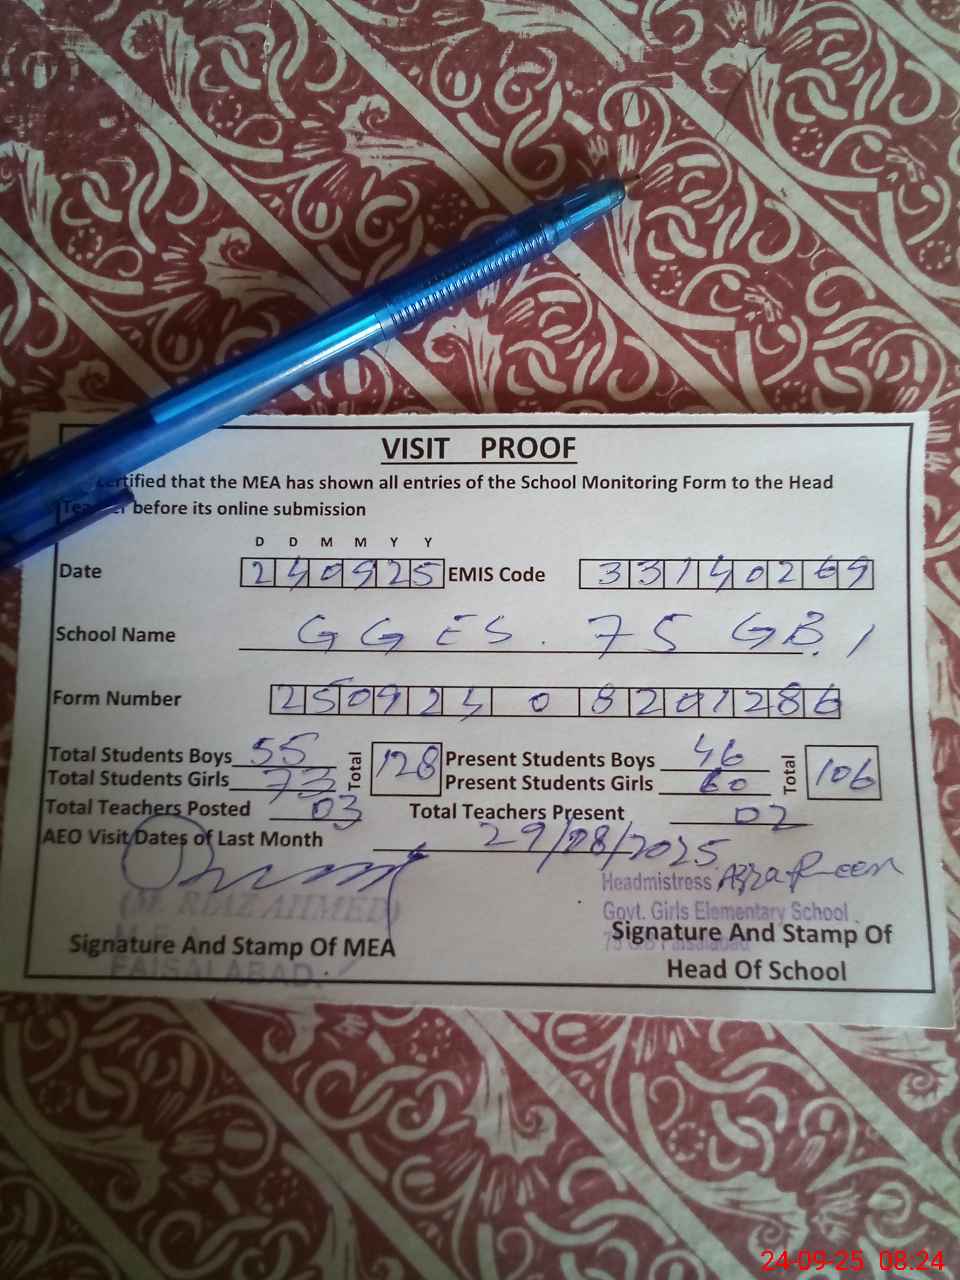 VISIT PROOF
certified that the MEA has shown all entries of the School Monitoring Form to the Head
Teacher before its online submission
D D M M Y Y
Date 240925 EMIS Code 33140269
School Name GGES. 75 GB. /
Form Number 250924 0 8201286
Total Students Boys 55 Total 128 Present Students Boys 46 Total 106
Total Students Girls 73 Present Students Girls 60
Total Teachers Posted 03 Total Teachers Present 02
AEO Visit Dates of Last Month 29/08/2025
Headmistress
(M. RIAZ AHMED)
Govt. Girls Elementary School
Signature And Stamp Of MEA
Signature And Stamp Of
Head Of School
FAISALABAD.
24-09-25 08:24